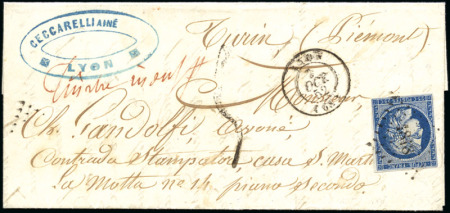 CECCARELLI AINÉ
LYON
Turin, (Piémont)
LYON
OCT.
52
Monsieur
Ch. Gandolfi, Avoué,
Contrada Stampatori, casa S. Marti
la Motta nº 14 piano secondo